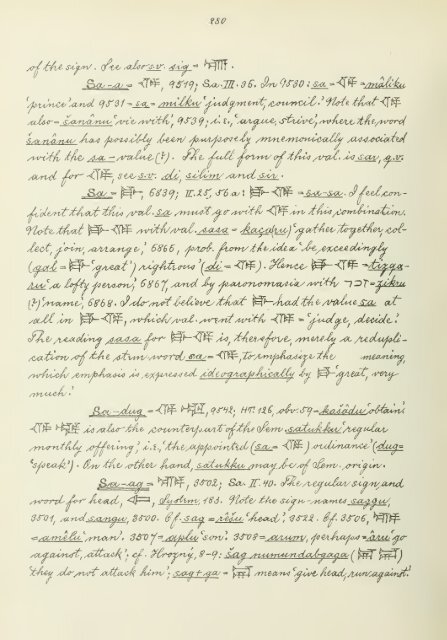 280
of the sign. See also s.v. sig = 𒊷.
Sa-a = 𒁲, 9519; Sa. III. 36. In 9530: sa = 𒁲 = mâliku
'prince' and 9531 = sa = milku 'judgment, council.' Note that 𒁲
also = šanânu 'vie with', 9539; i.e., 'argue, strive', where the word
šanânu has possibly been purposely mnemonically associated
with the sa-value (?). The full form of this val. is sar, q.v.
and for 𒁲, see s.v. di, silim and sir.
Sa = 6839; II. 25, 56a: 𒁲 = sa-sa. I feel con-
fident that this val. sa must go with 𒁲 in this combination.
Note that 𒁲 with val. sasa = kaçaru) 'gather together, col-
lect, join, arrange,' 6866, prob. from the idea 'be exceedingly
(gal = 'great') rightrous' (di = 𒁲). Hence 𒁲 = tizqa-
ru 'a lofty person', 6867, and by paronomasia with זכר = zikru
(?) 'name', 6868. I do not believe that had the value sa at
all in 𒁲, which val. went with 𒁲 = 'judge, decide.'
The reading sasa for 𒁲 is, therefore, merely a redupli-
cation of the stem word sa = 𒁲, to emphasize the meaning,
which emphasis is expressed ideographically by 'great, very
much.'
Sa-dug = 𒁲, 9542; HT. 126, obv. 59 = kašâdu 'obtain.'
𒁲 is also the counterpart of the Sem. satukku 'regular
monthly offering', i.e., 'the appointed (sa = 𒁲) ordinance' (dug =
'speak'). On the other hand, satukku may be of Sem. origin.
Sa-ag = 3502; Sa. II. 40. The regular sign and
word for head, 183. Note the sign-names saggu,
3501, and sangu, 3500. Cf. sag = rêšu 'head', 3522. Cf. 3506,
= amêlu 'man'. 3507 = aplu 'son'. 3508 = arum, perhaps = âru 'go
against, attack'; cf. Hrozný, 8-9: šag numundabgaga
'they do not attack him'; sag + ga = means 'give head, run against.'